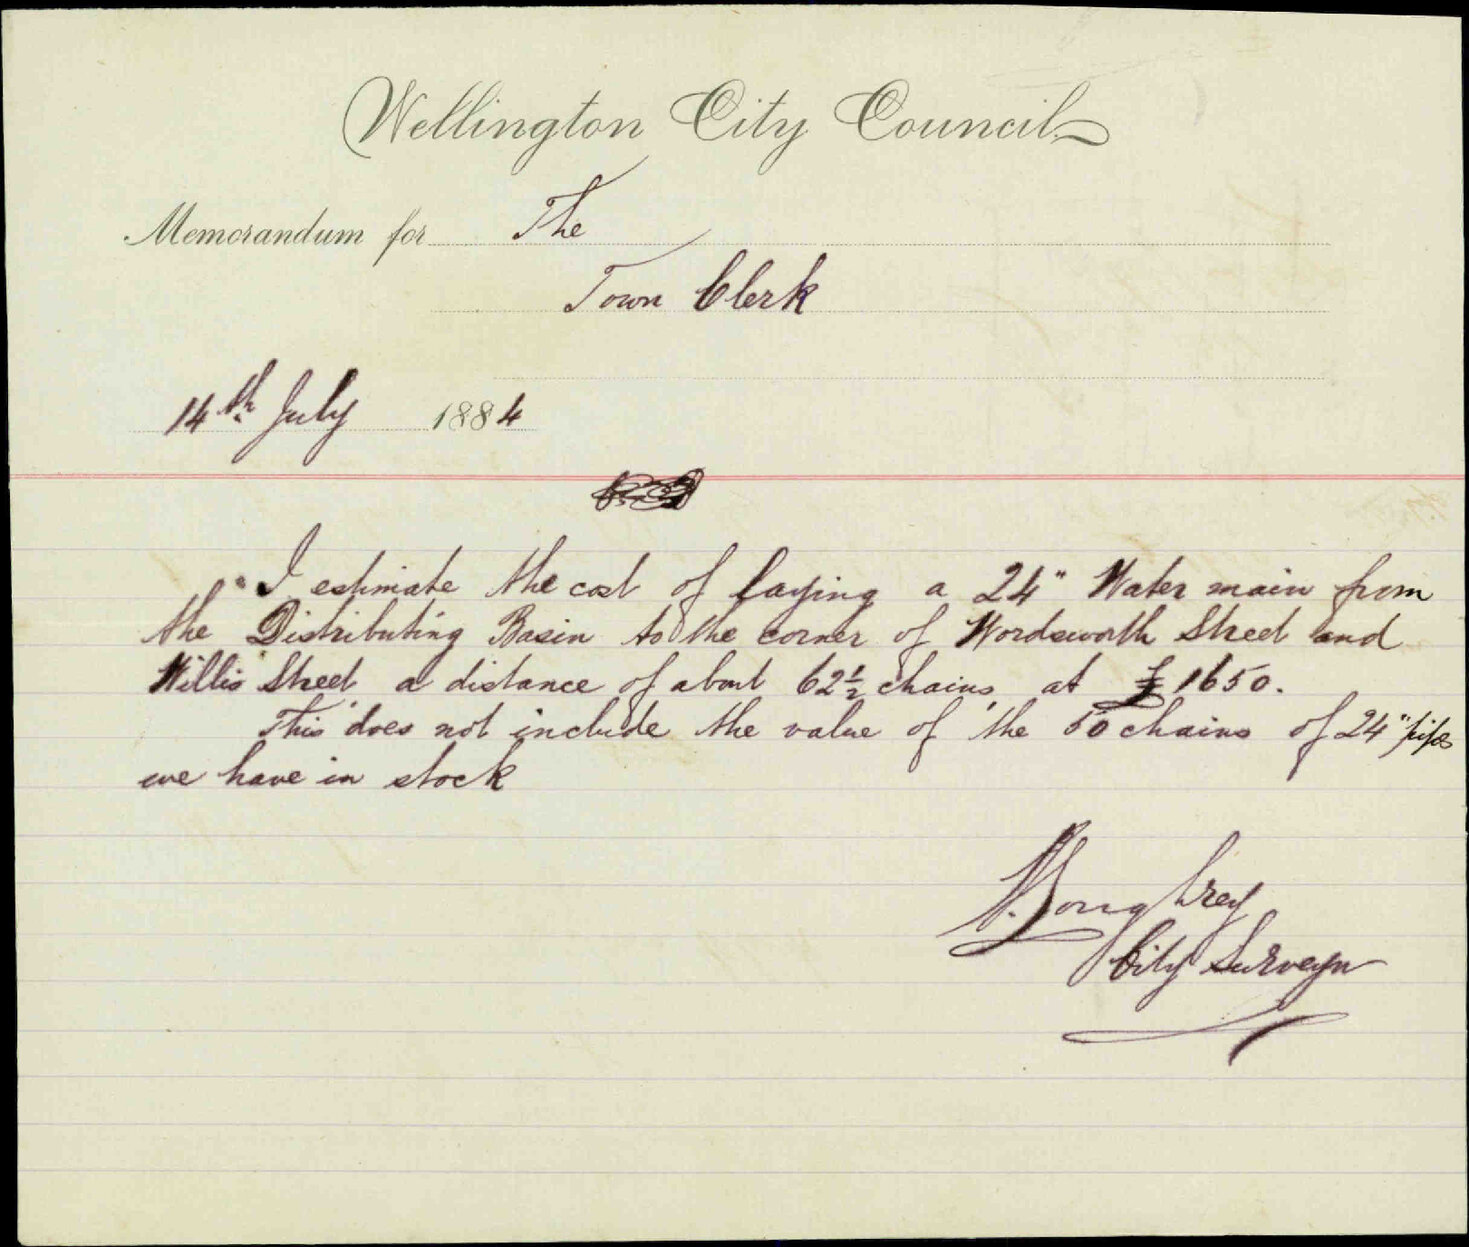 Wellington City Council
Memorandum for The
Town Clerk
14th July 1884
I estimate the cost of laying a 24" Water main from
the Distributing Basin to the corner of Wordsworth Street and
Willis Street a distance of about 62½ chains at £1650.
This does not include the value of the 50 chains of 24" pipes
we have in stock
City Surveyor